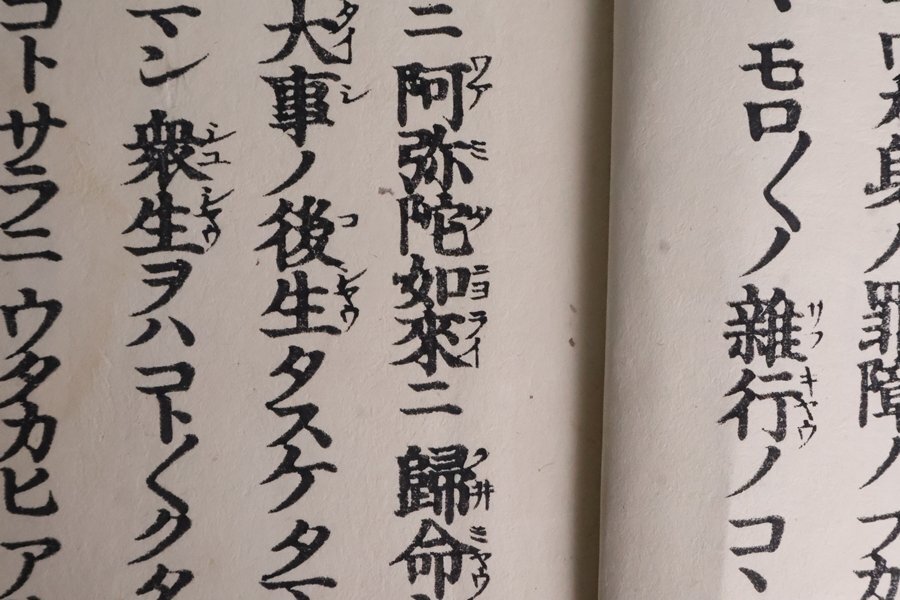 身ノ罪障ノフカ
モロ〱ノ雜行ノコヽ
ニ阿弥陀如來ニ歸命
大事ノ後生タスケタマ
マン衆生ヲハコト〱クタ
コトサラニウタカヒア